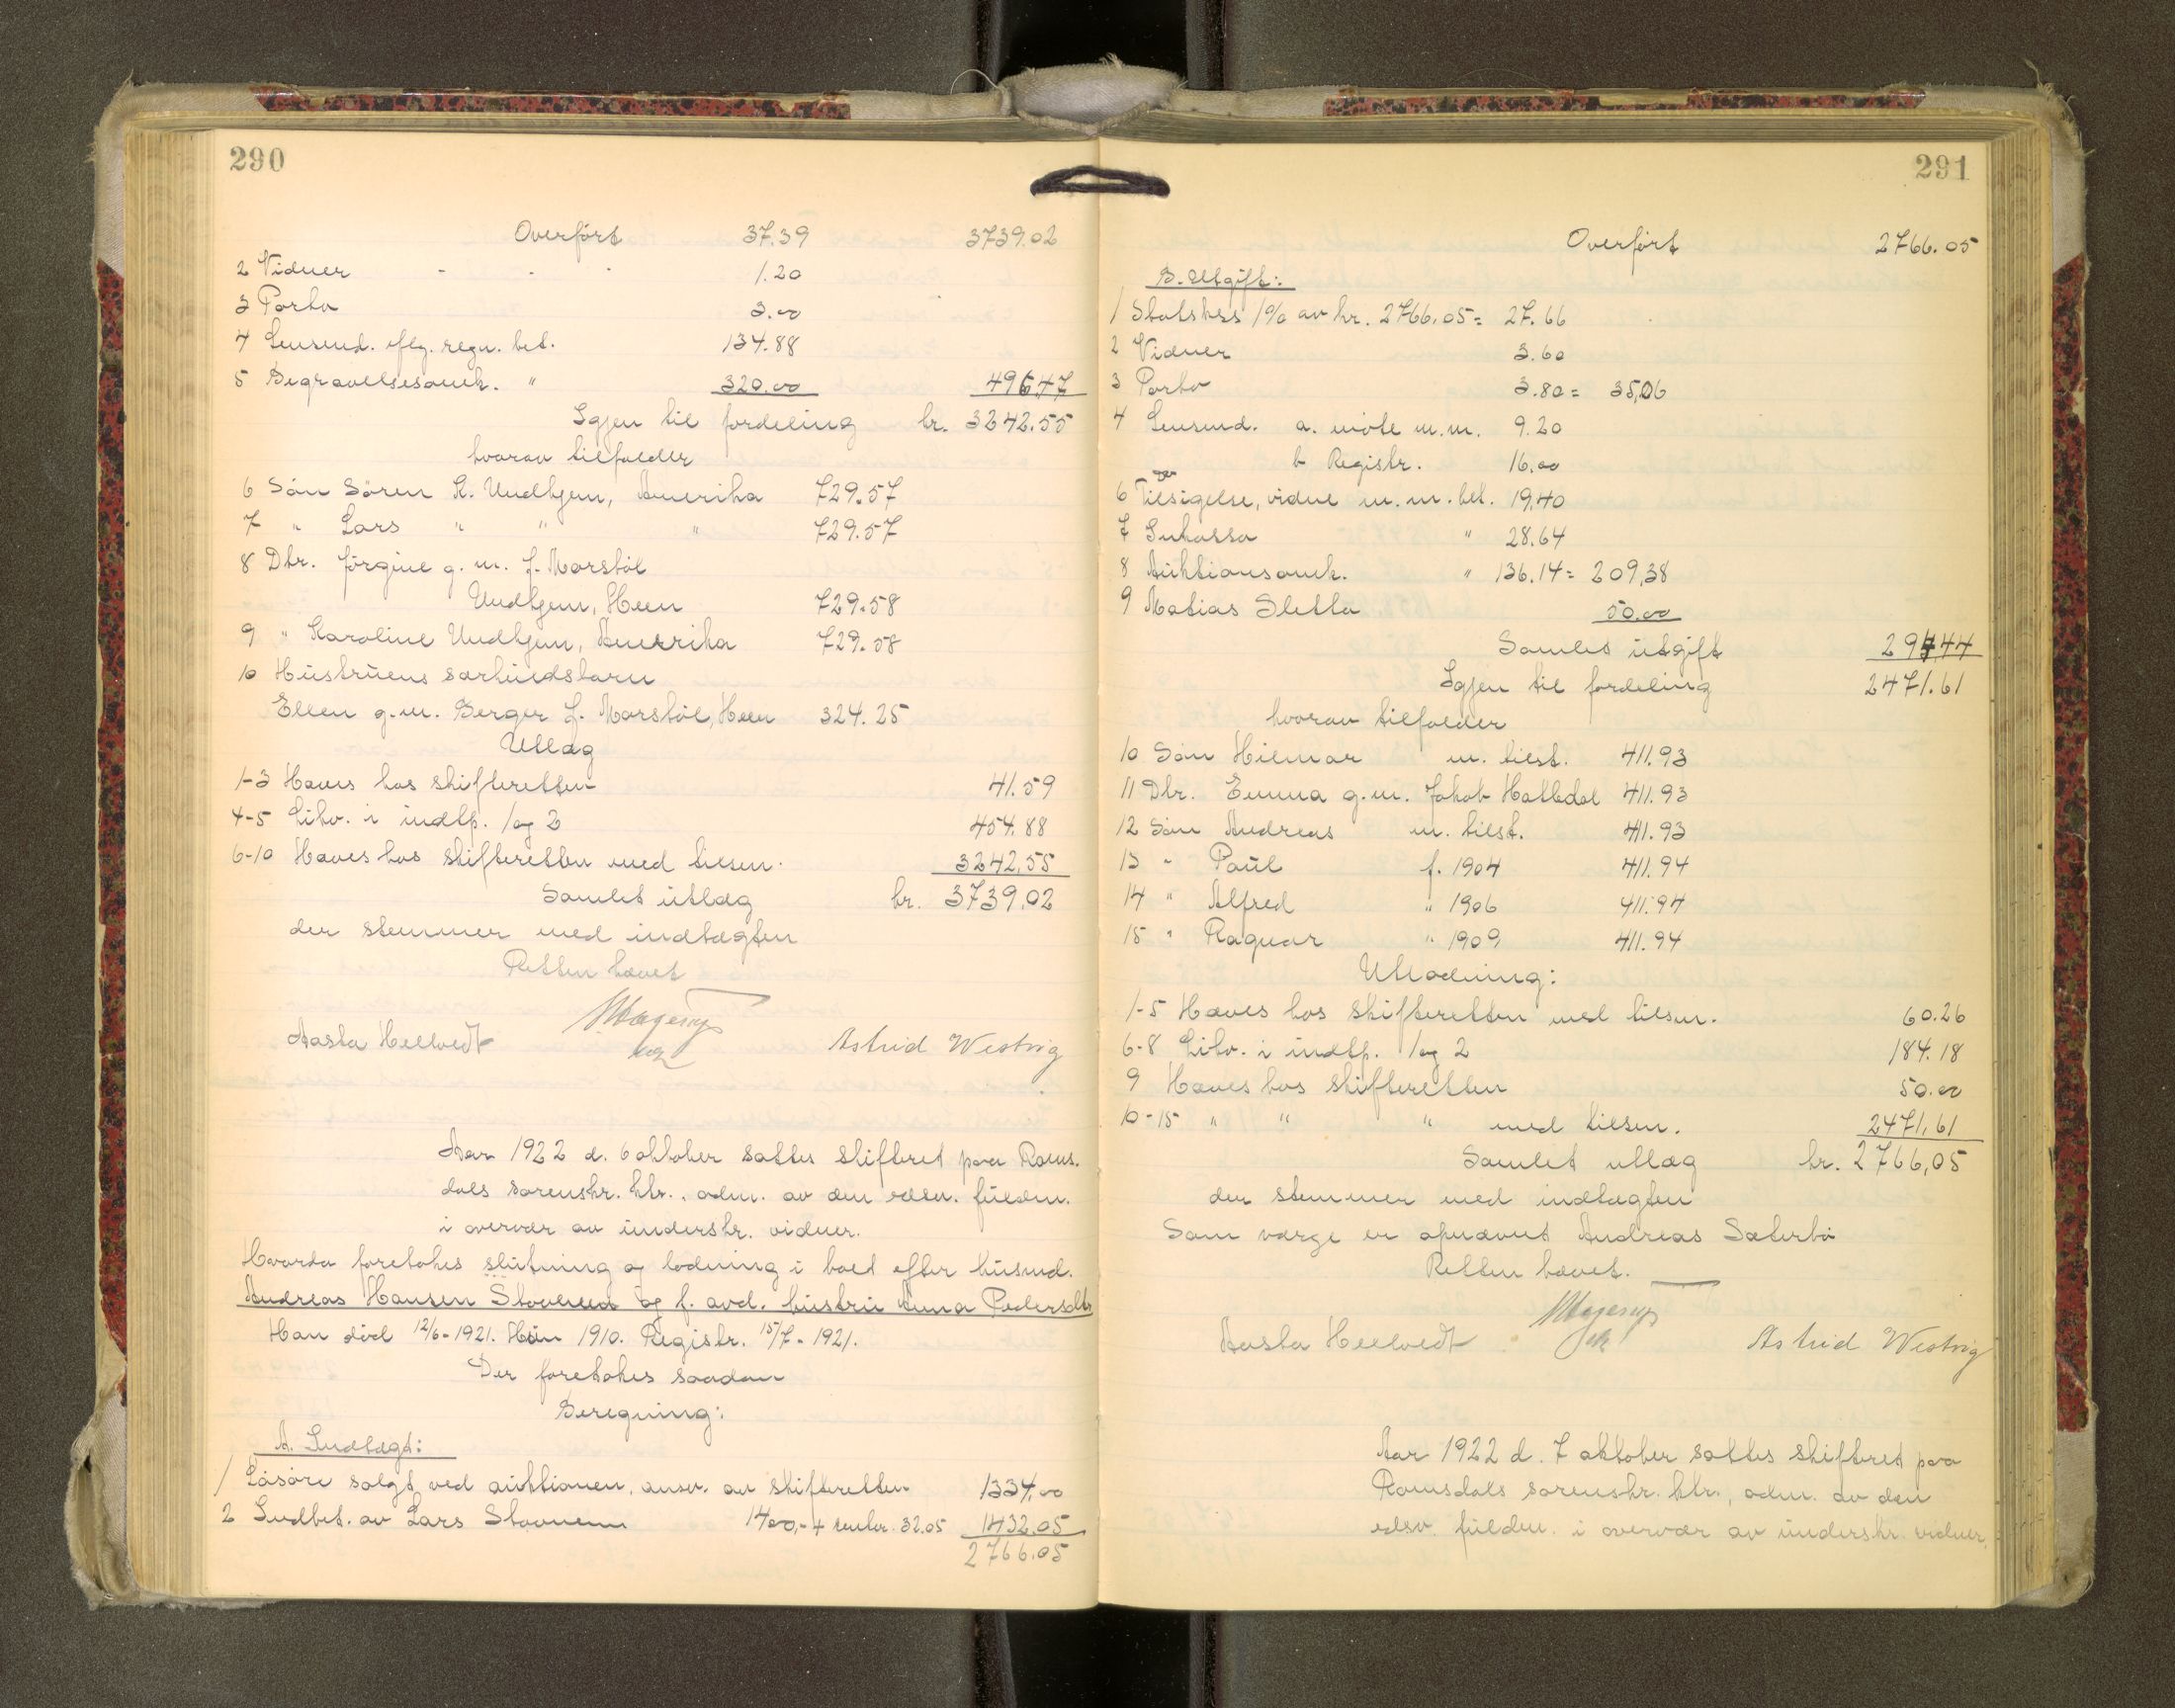 290
Overført 37.39 3739.02
2 Vidner - - - 1.20
3 Porto 3.00
4 Lensmd. eflg. regn. bet. 134.88
5 Begravelsesomk. " 320.00 496,47
Igjen til fordeling kr. 3242.55
hvorav tilfalder
6 Søn Søren K. Undhjem, Amerika 729.57
7 " Lars " " " 729.57
8 Dtr. Jørgine g. m. J. Morstøl
Undhjem, Heen 729.58
9 " Karoline Undhjem, Amerika 729.58
10 Hustruens særkuldsbarn
Ellen g.m. Berger J. Morstøl, Heen 324.25
Utlæg
1-3 Hæves hos skifteretten 41.59
4-5 Likv. i indtp. 1 og 2 454.88
6-10 Hæves hos skifteretten med tilsm. 3242,55
Samlet utlæg kr. 3739,02
der stemmer med indtægten
Retten hævet
Hagerup
Aasta Hellvedt Astrid Westvig
Aar 1922 d. 6 oktober sattes skifteret paa Roms-
dals sorenskr. ktr., adm. av den edsv. fuldm.
i overvær av underskr. vidner.
Hvorda foretokes slutning og lodning i boet efter husmd.
Andreas Hansen Stavnem og f. avd. hustru Anna Pedersdtr
Han död 12/6-1921. Hun 1910. Registr. 15/7-1921.
Der foretokes saadan
Beregning:
A. Indtægt:
1 Løsøre solgt ved auktionen, ansv. av skifteretten 1334,00
2 Indbet. av Lars Stavnem 1400,- + renter 32.05 1432,05
2766.05
291
Overført 2766.05
B. Utgift:
1 Statskss 1% av kr. 2766,05 = 27.66
2 Vidner 3.60
3 Porto 3.80 = 35,06
4 Lensmd. a. møte m.m. 9.20
b Registr. 16.00
6 Tilsigelse, vidne m. m. bet. 19,40
7 Inkasso " 28.64
8 Auktionsomk. " 136.14 = 209,38
9 Matias Sletta 50.00
Samlet utgift 294,44
Igjen til fordeling 2471.61
hvorav tilfalder
10 Søn Hilmar m. tilst. 411.93
11 Dtr. Emma g.m. Jakob Hatledal 411.93
12 Søn Andreas m. tilst. 411.93
13 " Paul f. 1904 411.94
14 " Alfred " 1906 411.94
15 " Ragnar " 1909 411.94
Utlodning:
1-5 Hæves hos skifteretten med tilsm. 60.26
6-8 Likv. i indtp. 1 og 2 184.18
9 Hæves hos skifteretten 50.00
10-15 " " " med tilsm. 2471,61
Samlet utlæg kr. 2766,05
der stemmer med indtægten
Som værge er opnævnt Andreas Sæterbø
Retten hævet.
Hagerup
Aasta Hellvedt Astrid Westvig
Aar 1922 d. 7 oktober sattes skifteret paa
Romsdals sorenskr. ktr., adm. av den
edsv. fuldm. i overvær av underskr. vidner.